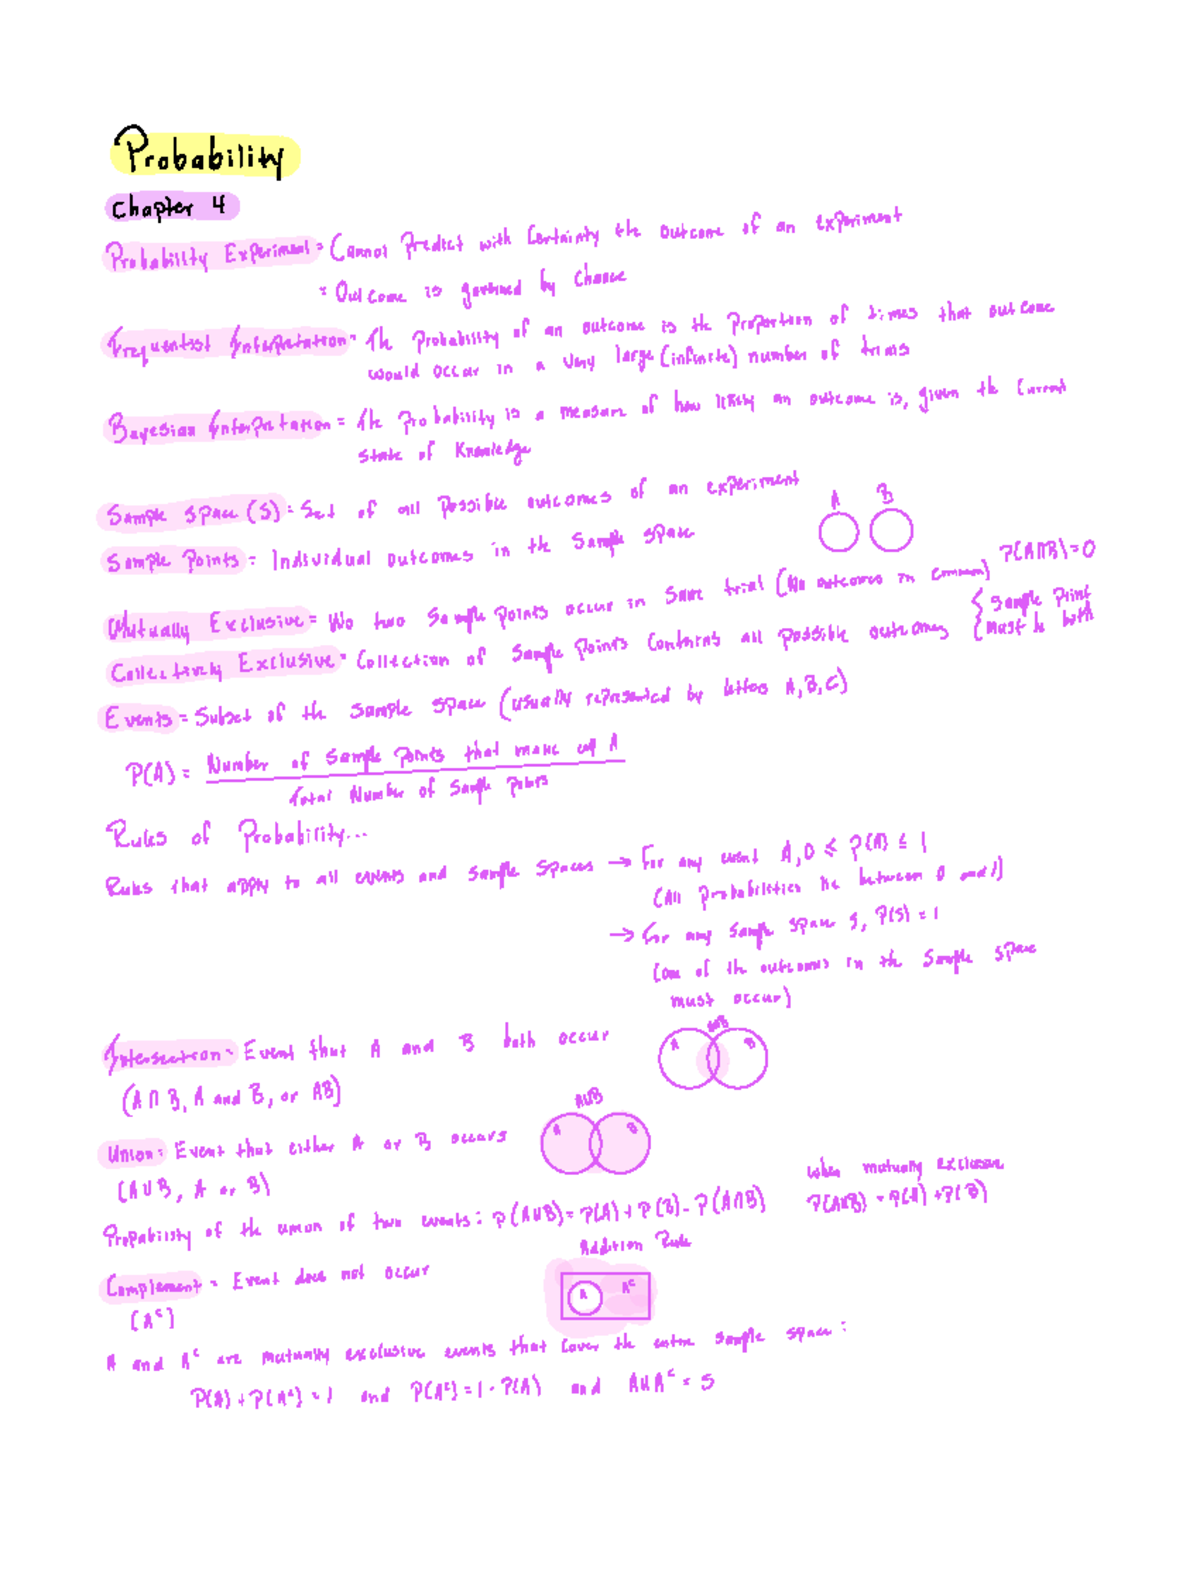 Probability
Chapter 4
Probability Experiment = Cannot Predict with Certainty the outcome of an experiment
= Outcome is governed by Chance
Frequentist Interpretation = The Probability of an outcome is the Proportion of times that outcome
would occur in a very large (infinite) number of trials
Bayesian Interpretation = The Probability is a measure of how likely an outcome is, given the Current
state of Knowledge
Sample Space (S) = Set of all Possible outcomes of an experiment
A B
Sample Points = Individual outcomes in the Sample Space
P(A∩B)=0
Mutually Exclusive = No two Sample Points occur in Same trial (No outcomes in common)
{ Sample Point
Must be both
Collectively Exclusive = Collection of Sample Points Contains all possible outcomes
Events = Subset of the Sample Space (usually represented by letters A,B,C)
P(A) = Number of Sample Points that make up A
Total Number of Sample Points
Rules of Probability...
Rules that apply to all events and Sample Spaces → For any event A, 0 ≤ P(A) ≤ 1
(All probabilities lie between 0 and 1)
→ For any Sample Space S, P(S) = 1
(One of the outcomes in the Sample Space
must occur)
Intersection = Event that A and B both occur
A B
(A∩B, A and B, or AB)
A∪B
Union = Event that either A or B occurs
A B
(A∪B, A or B)
When mutually exclusive
Probability of the union of two events: P(A∪B) = P(A) + P(B) - P(A∩B)
P(A∪B) = P(A) + P(B)
Addition Rule
Complement = Event does not occur
A Aᶜ
(Aᶜ)
A and Aᶜ are mutually exclusive events that cover the entire sample space:
P(A) + P(Aᶜ) = 1 and P(Aᶜ) = 1 - P(A) and A∪Aᶜ = S